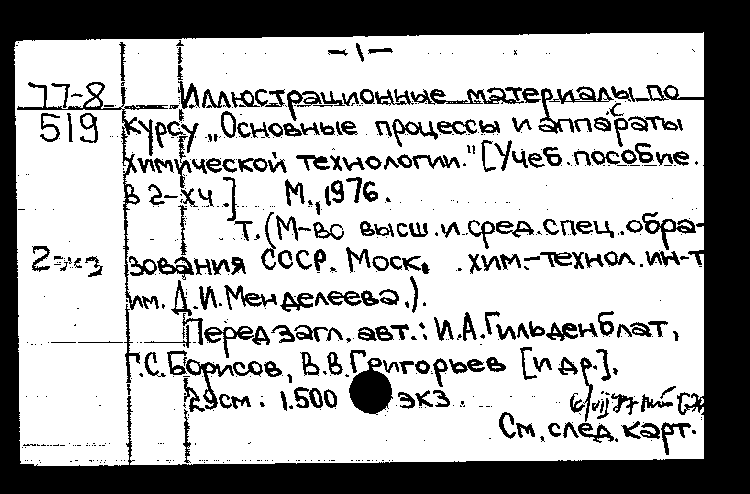 – 1 –
77-8 Иллюстрационные материалы по
519 курсу „Основные процессы и аппараты
химической технологии." [Учеб. пособие.
В 2-х ч.] М., 1976.
т. (М-во высш. и сред. спец. обра-
2 экз зования СССР. Моск. хим.-технол. ин-т
им. Д. И. Менделеева.).
Перед загл. авт.: И.А. Гильденблат,
Г.С. Борисов, В.В. Григорьев [и др.].
29см. 1.500 экз.
См. след. карт.